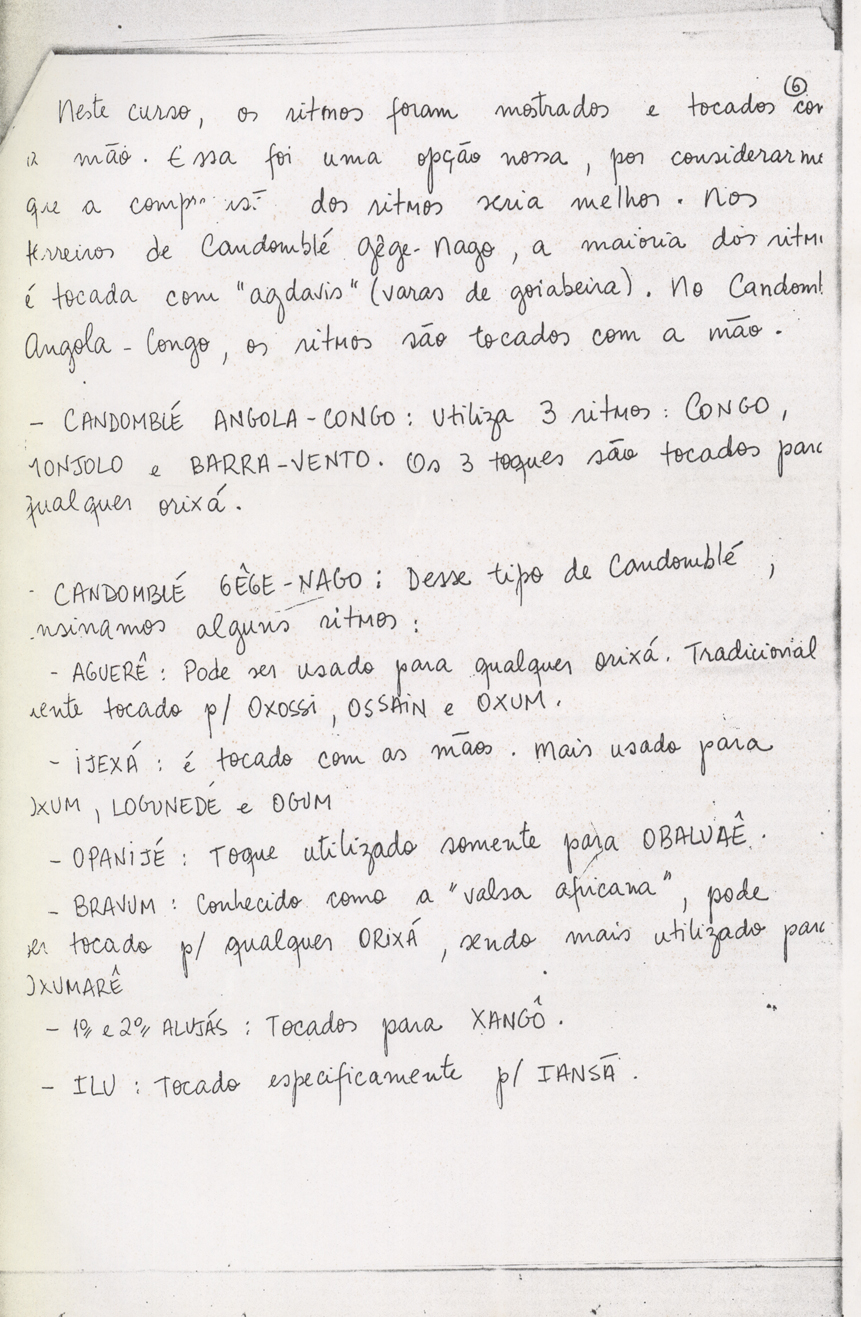 6
Neste curso, os ritmos foram mostrados e tocados
mão. Essa foi uma opção nossa, por considerarm
que a dos ritmos seria melhor. Nos
terreiros de Candomblé Gêge-Nago, a maioria dos ritm
é tocada com "agdavis" (varas de goiabeira). No Candombl
Angola-Congo, os ritmos são tocados com a mão.
- CANDOMBLÉ ANGOLA-CONGO: Utiliza 3 ritmos: CONGO,
MONJOLO e BARRA-VENTO. Os 3 toques são tocados para
qualquer orixá.
- CANDOMBLÉ GÊGE-NAGO: Desse tipo de Candomblé,
nsinamos alguns ritmos:
- AGUERÊ: Pode ser usado para qualquer orixá. Tradicional
mente tocado p/ OXOSSI, OSSAIN e OXUM.
- IJEXÁ: é tocado com as mãos. Mais usado para
OXUM, LOGUNEDÉ e OGUM
- OPANIJÉ: Toque utilizado somente para OBALUAÊ.
- BRAVUM: Conhecido como a "valsa africana", pode
ser tocado p/ qualquer ORIXÁ, sendo mais utilizado para
OXUMARÊ
- 1º e 2º ALUJÁS: Tocados para XANGÔ.
- ILU: Tocado especificamente p/ IANSÃ.